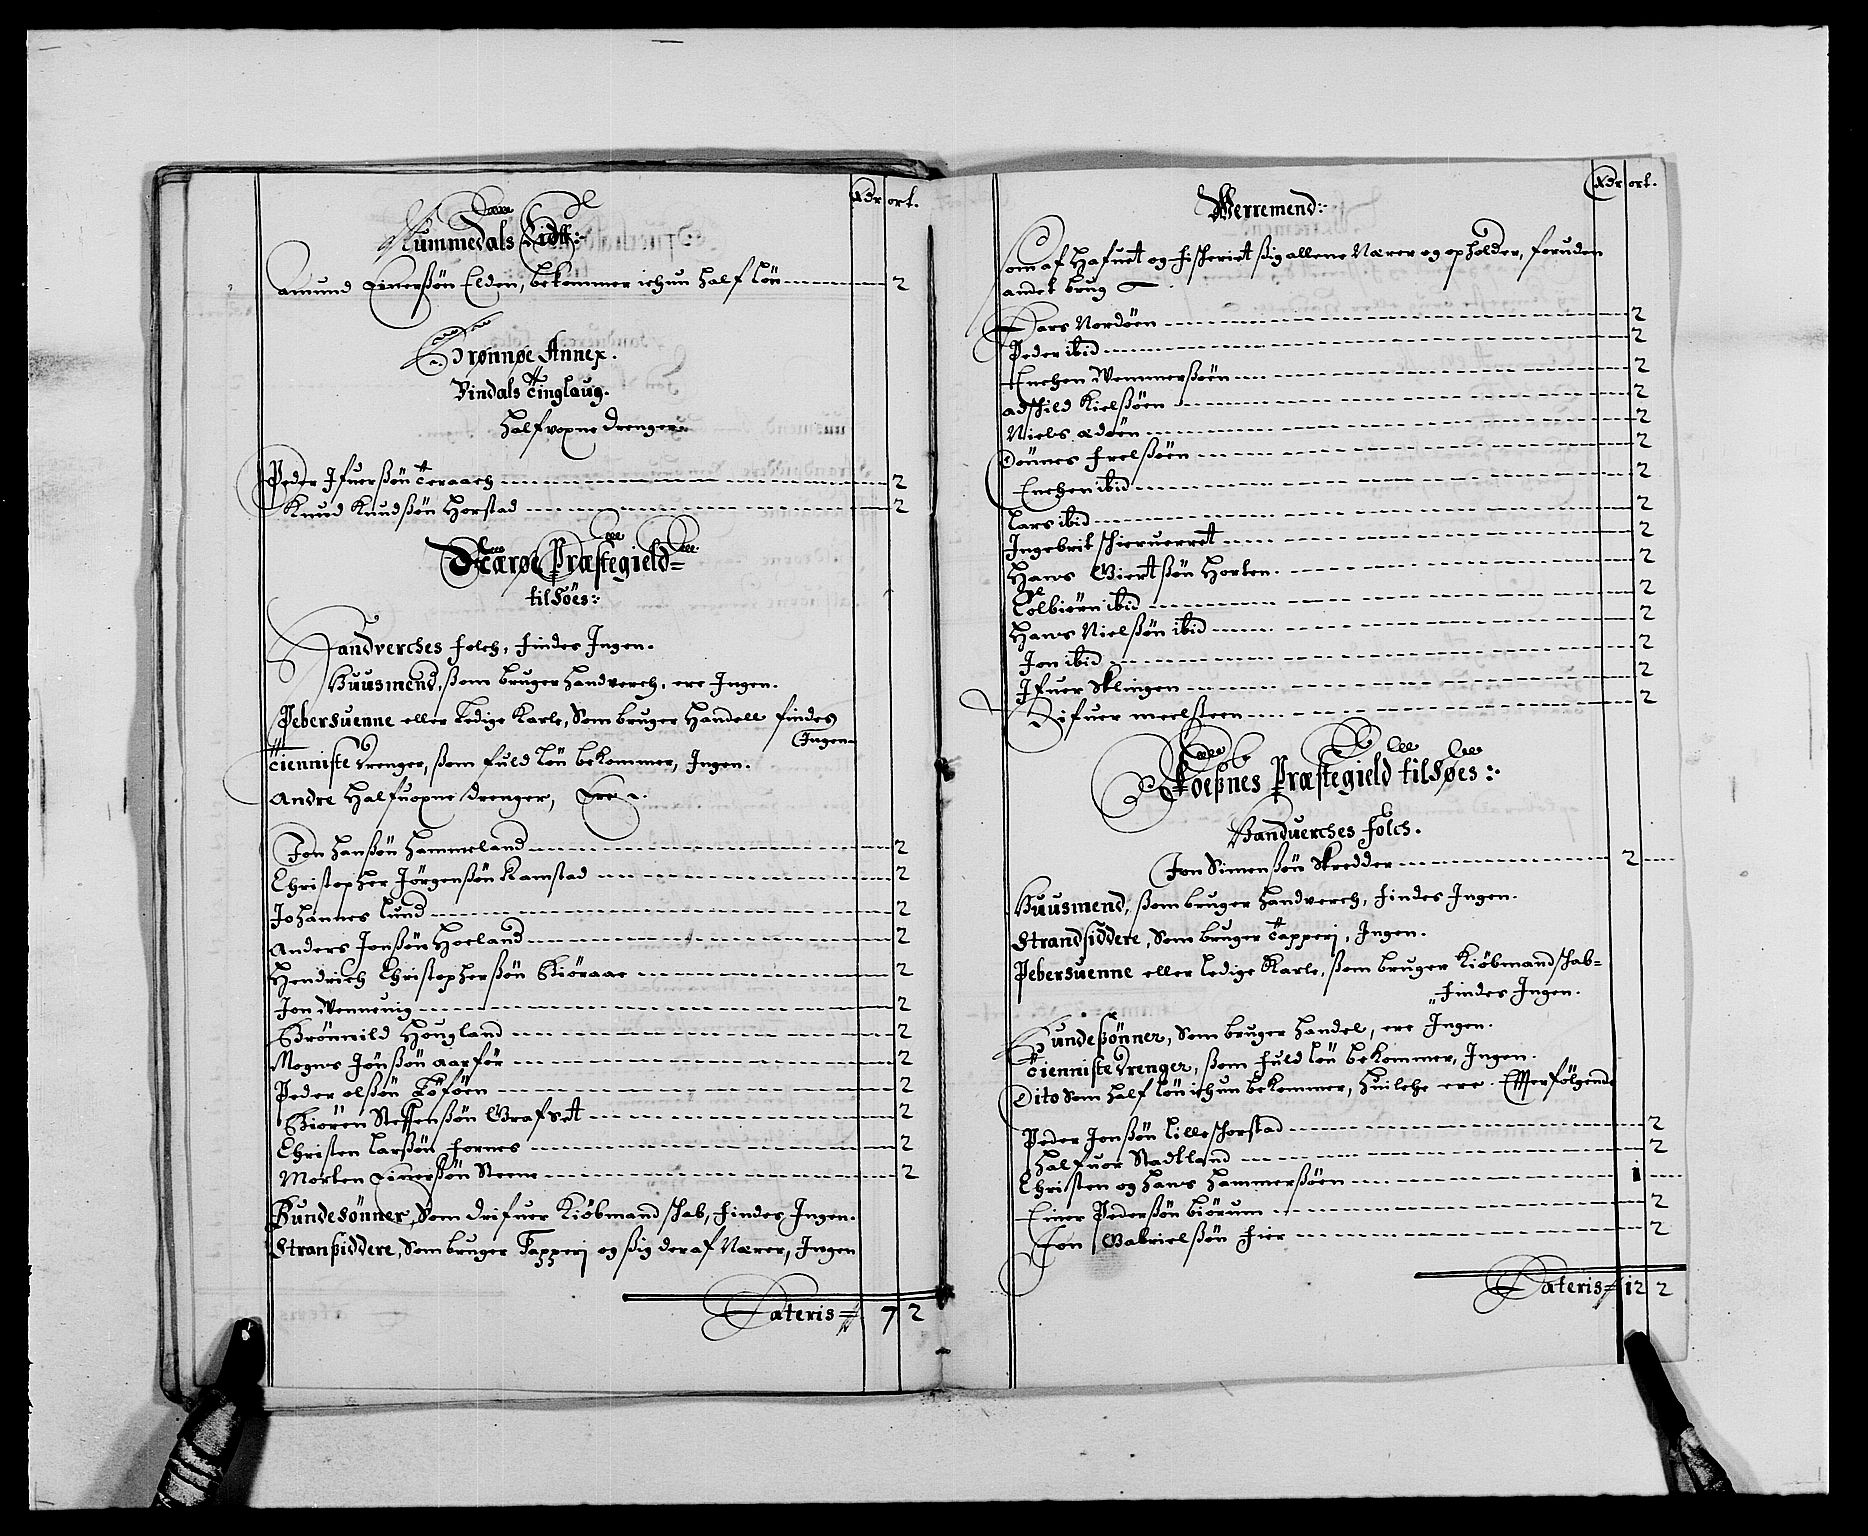 Rdr ort.
Nummedals Eidtt:
Amund Einerßøn Elden, bekommer ichun half løn 2
Grønnøe Annex.
Vindals Tinglaug.
Halfvoxne drenger
Peder Ifuerßøn Teraach 2
Knud Knudßøn Horstad 2
Nærøe Præstegield
til Søes:
Handverches folch, findes Ingen.
Huusmend, ßom bruger handverch, ere Ingen.
Pebersuenne eller Ledige Karle, Som bruger Handell findes
Ingen
Tienniste drenger, ßom fuld løn bekommer, Ingen.
Andre Halfuoxne drenger, Ere
Jon Hanßøn Hammeland 2
Christopher Jørgenßøn Ramstad 2
Johannes Lund 2
Anders Jonßøn Hoeland 2
Hendrich Christopherßøn Giøraae 2
Jon Wennevig 2
Grønnild Hougland 2
Mogns Jønßøn Aarfør 2
Peder olßøn Løføen 2
Giøren Steffenßøn Grafset 2
Christen Larßøn Fornes 2
Morten Einerßøn Steene 2
Bundesønner, Som drifuer Kiøbmandschab, findes Ingen.
Stranßiddere, Som bruger Tapperj og ßig deraf Nærer, Ingen
Lateris 7 2
Rdr ort.
Werremend:
Som af Hafuet og fischeriet ßig allene Nærer og opholder, foruden
andet brug
Lars Nordøen 2
Peder ibid 2
Enchen Wemmerßøen 2
Adschild Kielßøen 2
Niels ædøen 2
Dønnes Frelßøen 2
Enchen ibid 2
Lars ibid 2
Ingebrit Schieruerret 2
Hans Giertßøn Horten 2
Tolbiørn ibid 2
Hans Nielßøn ibid 2
Jon ibid 2
Ifuer Sklingen 2
Sifuer meelsteen 2
Foeßnes Præstegield til Søes:
Handuerches folch.
Jon Simenßøn Skredder 2
Huusmend, ßom bruger handverch, findes Ingen.
Strandsiddere, Som bruger Tapperj, Ingen.
Pebersuenne eller ledige Karle, ßom bruger Kiøbmandschab
findes Ingen.
Bundeßønner, Som bruger handel, ere Ingen.
Tienniste drenger, ßom fuld løn bekommer, Ingen.
Dito Som half løn ichun bekommer, huilche ere Efterfølgende
Peder Jonßøn Lilleschorstad 2
Halfuor Stadtland 2
Christen og Hans Hammerßøen 1
Einer Pederßøn Biørum 2
Jon Gabrielßøn Fier 2
Lateris 12 2